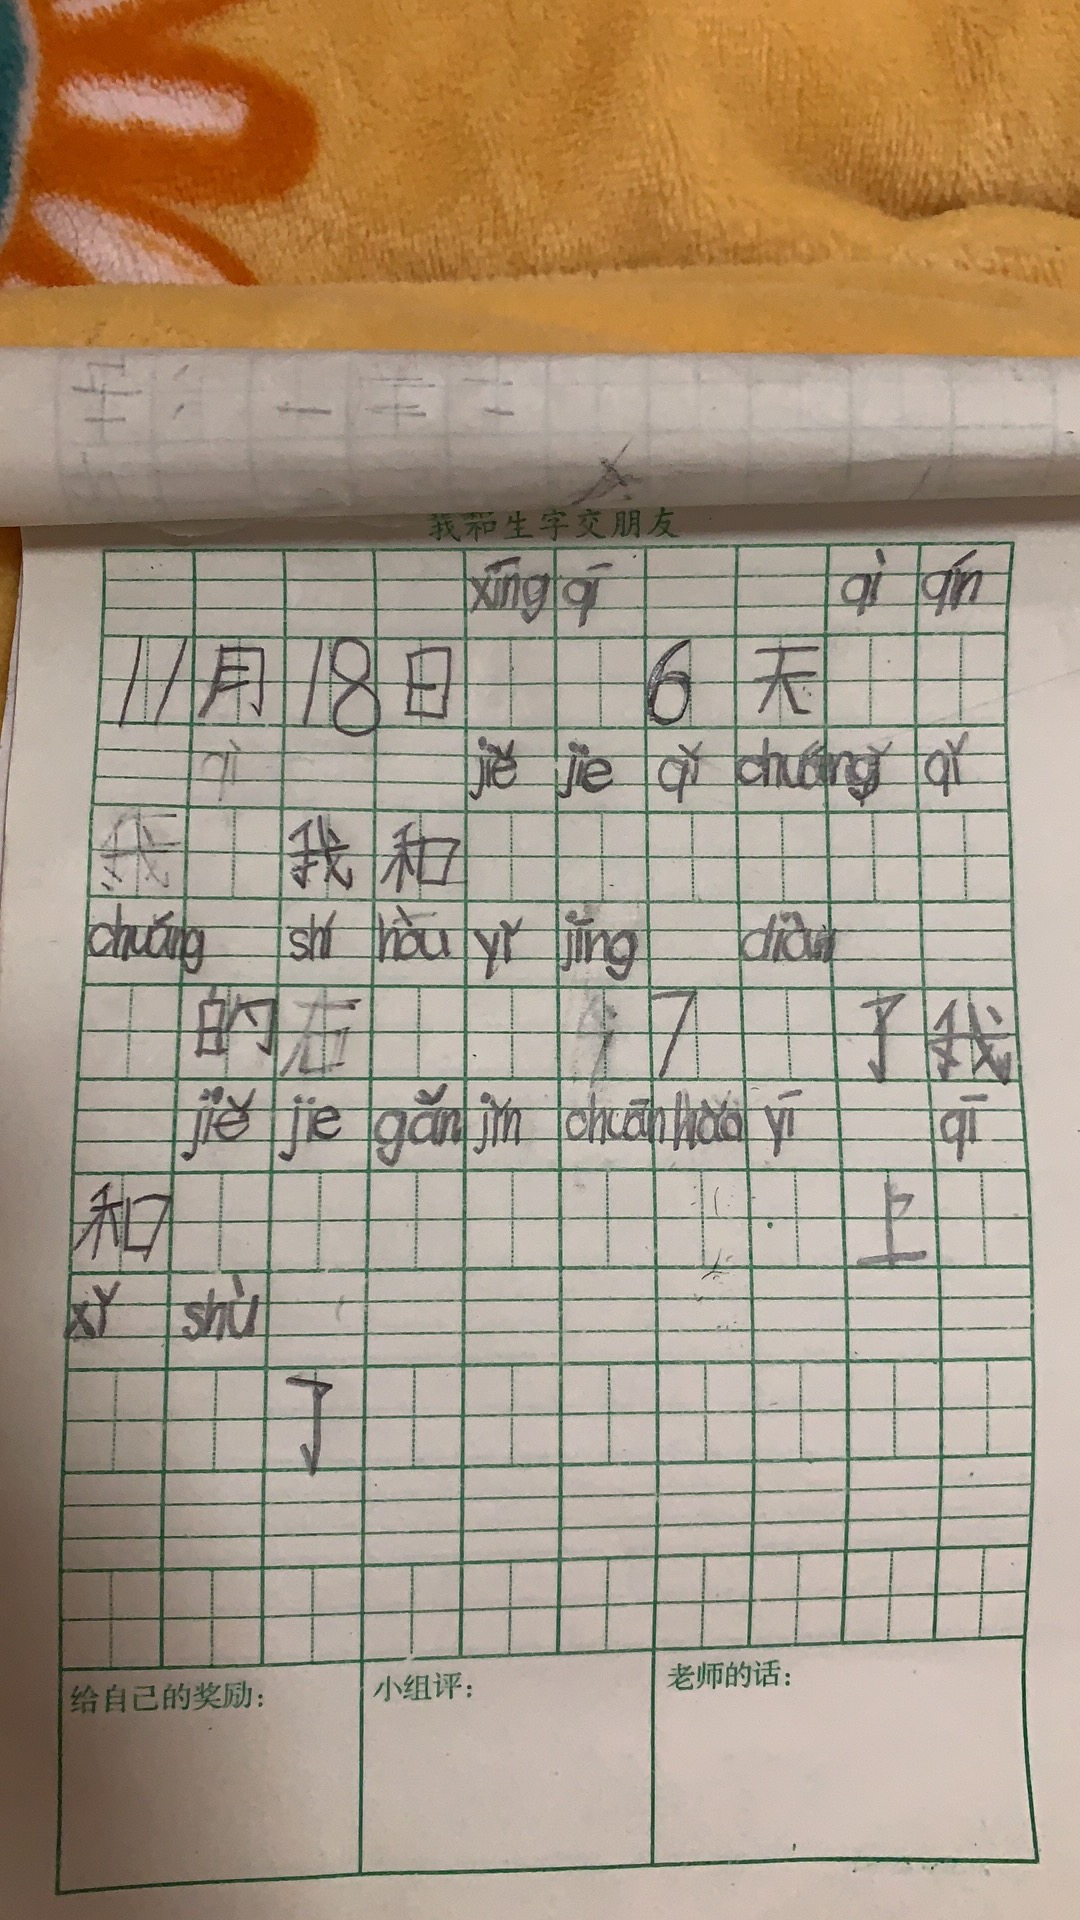 我和生字交朋友
xīng qī qì qín
11月18日 6 天
qì jiě jie qǐ chuáng qǐ
我 我和
chuáng shí hòu yǐ jīng diǎn
的 石 7 了我
jiě jie gǎn jǐn chuān hǎo yī qī
和 上
xǐ shù
了
给自己的奖励：
小组评：
老师的话：